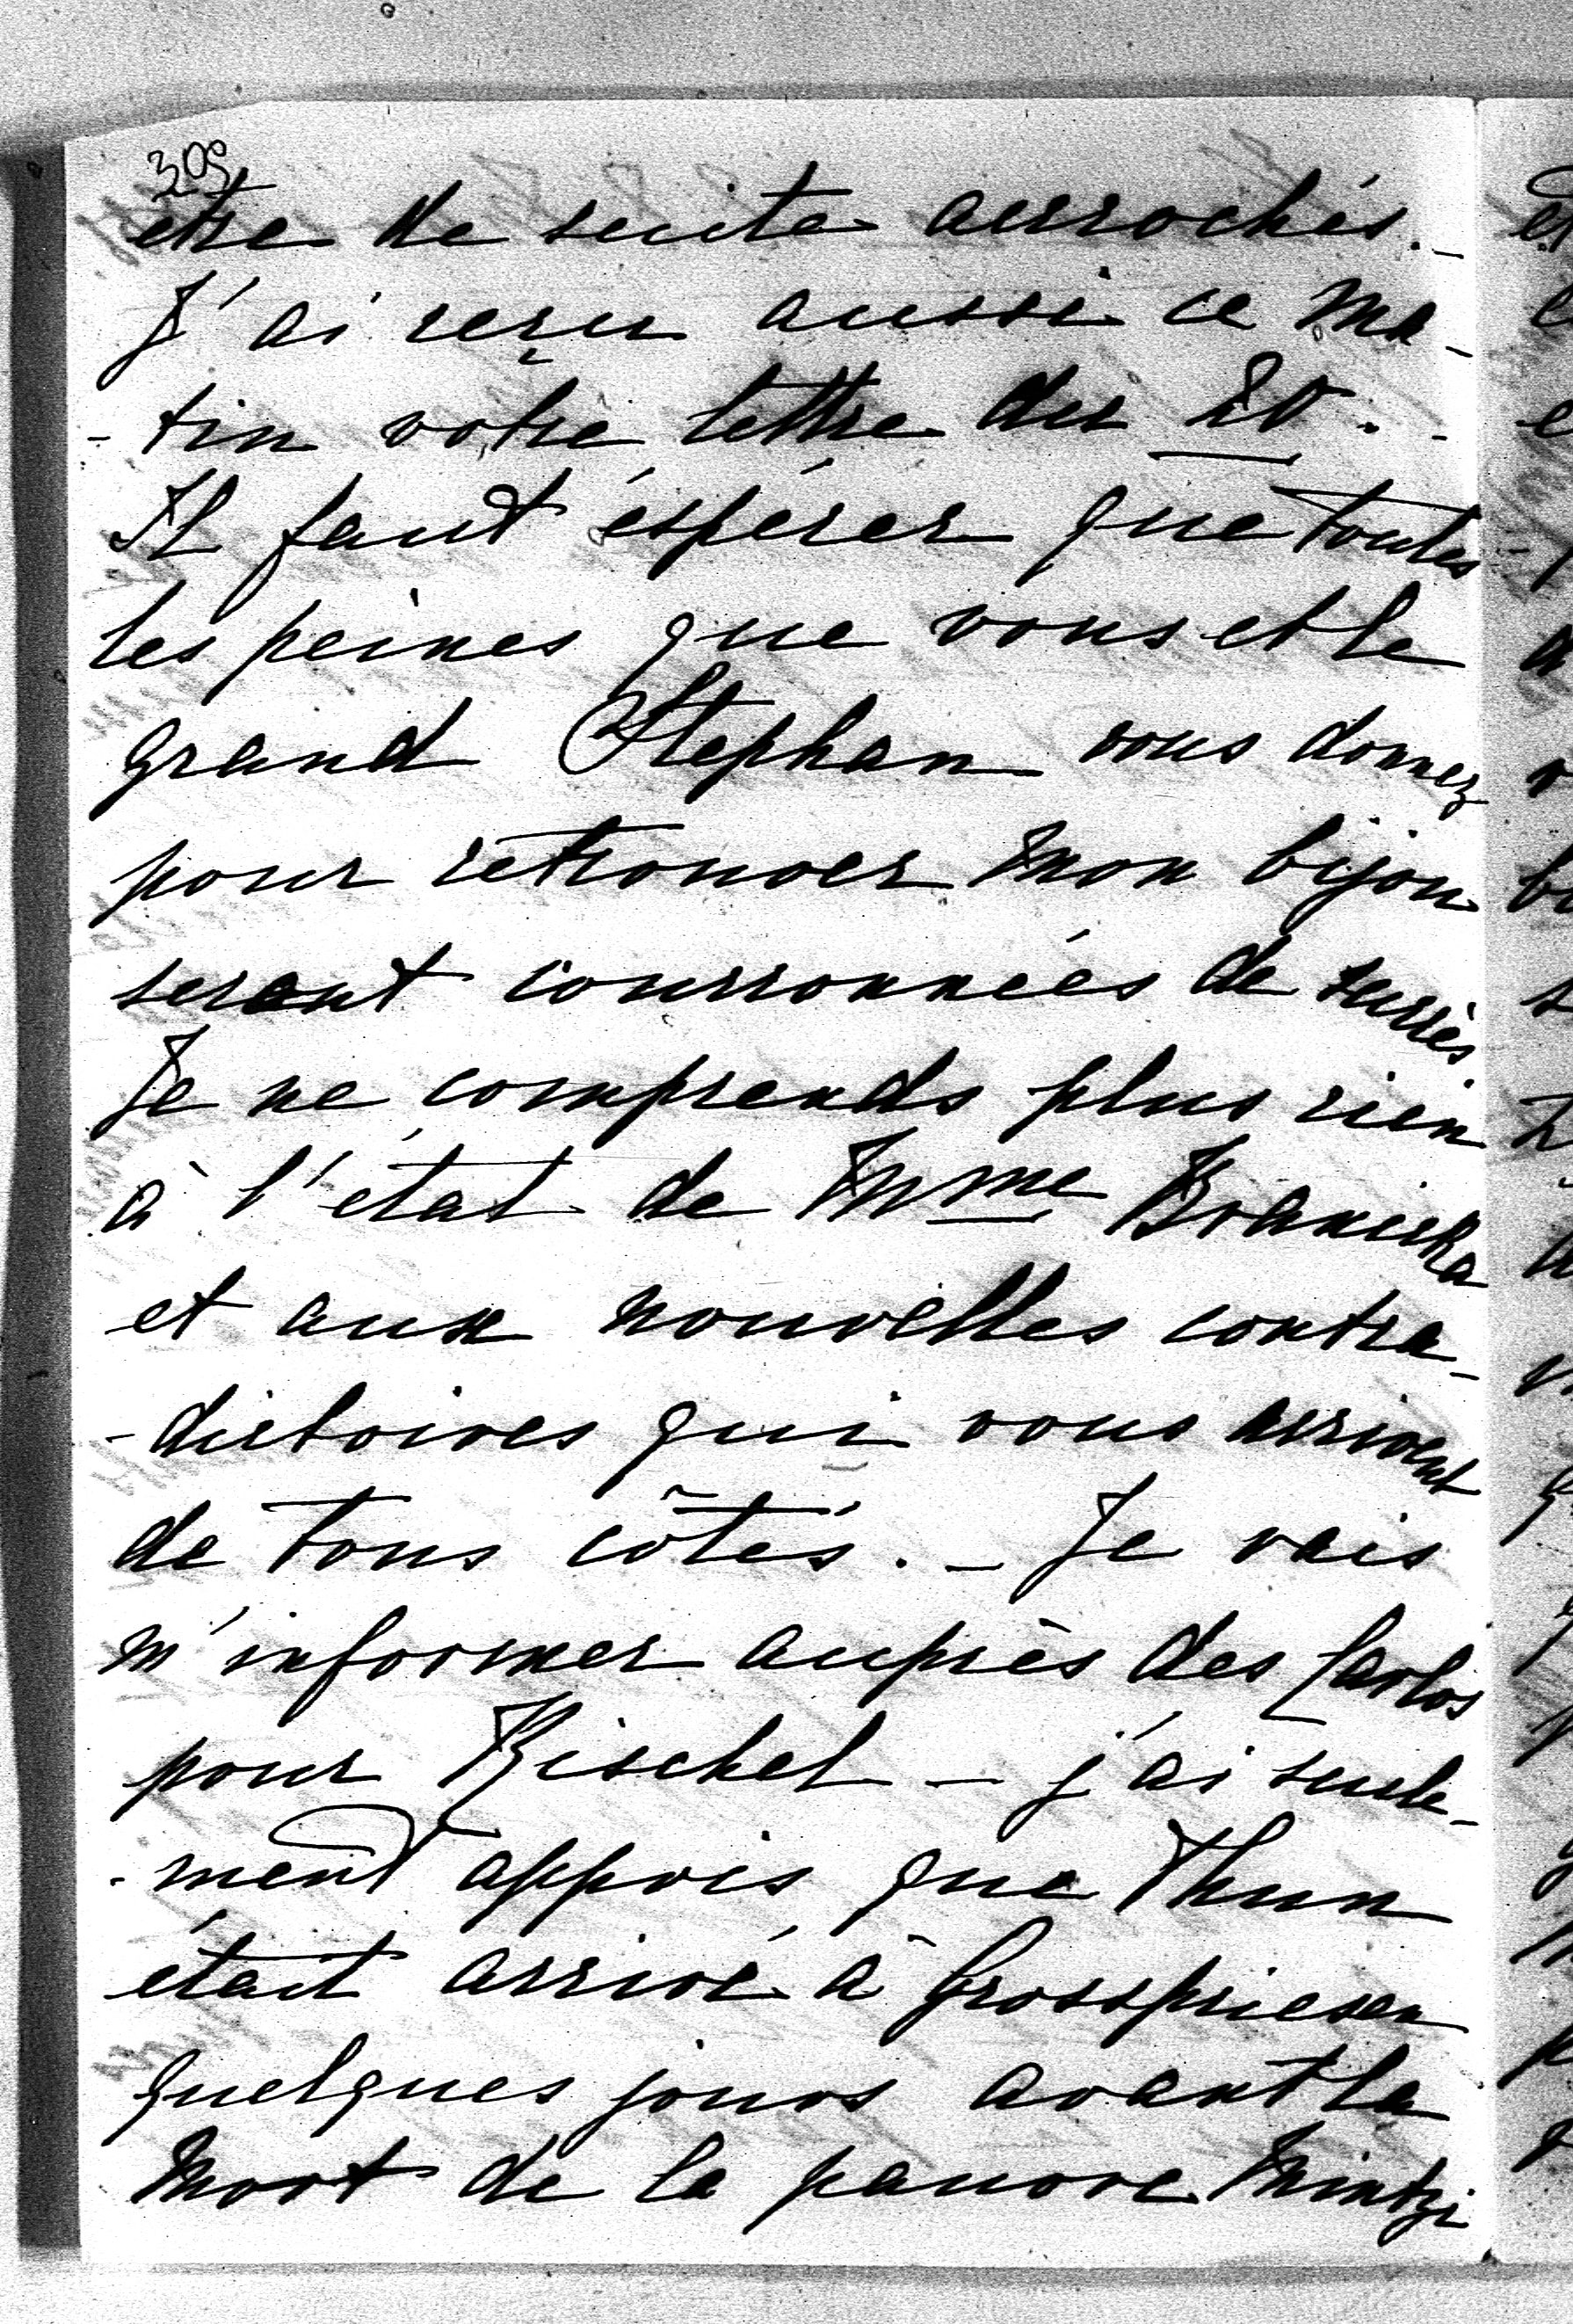 309
être de suite accrochés._
J'ai reçu aussi ce ma-
-tin votre lettre du 20.
Il faut éspérer que toutes
les peines que vous et le
grand Stephan vous donnez
pour retrouver mon bijou
seront courronnées de succès.
Je ne comprends plus rien
à l'état de Mme Branicka
et aux nouvelles contra-
-dictoires qui vous arrivent
de tous côtés. _ Je vais
m'informer auprès des Carlos
pour Kischel _ j'ai seule-
-ment appris que Thun
était arrivé à Grosspriesen
quelques jours avant la
mort de la pauvre Mintzi